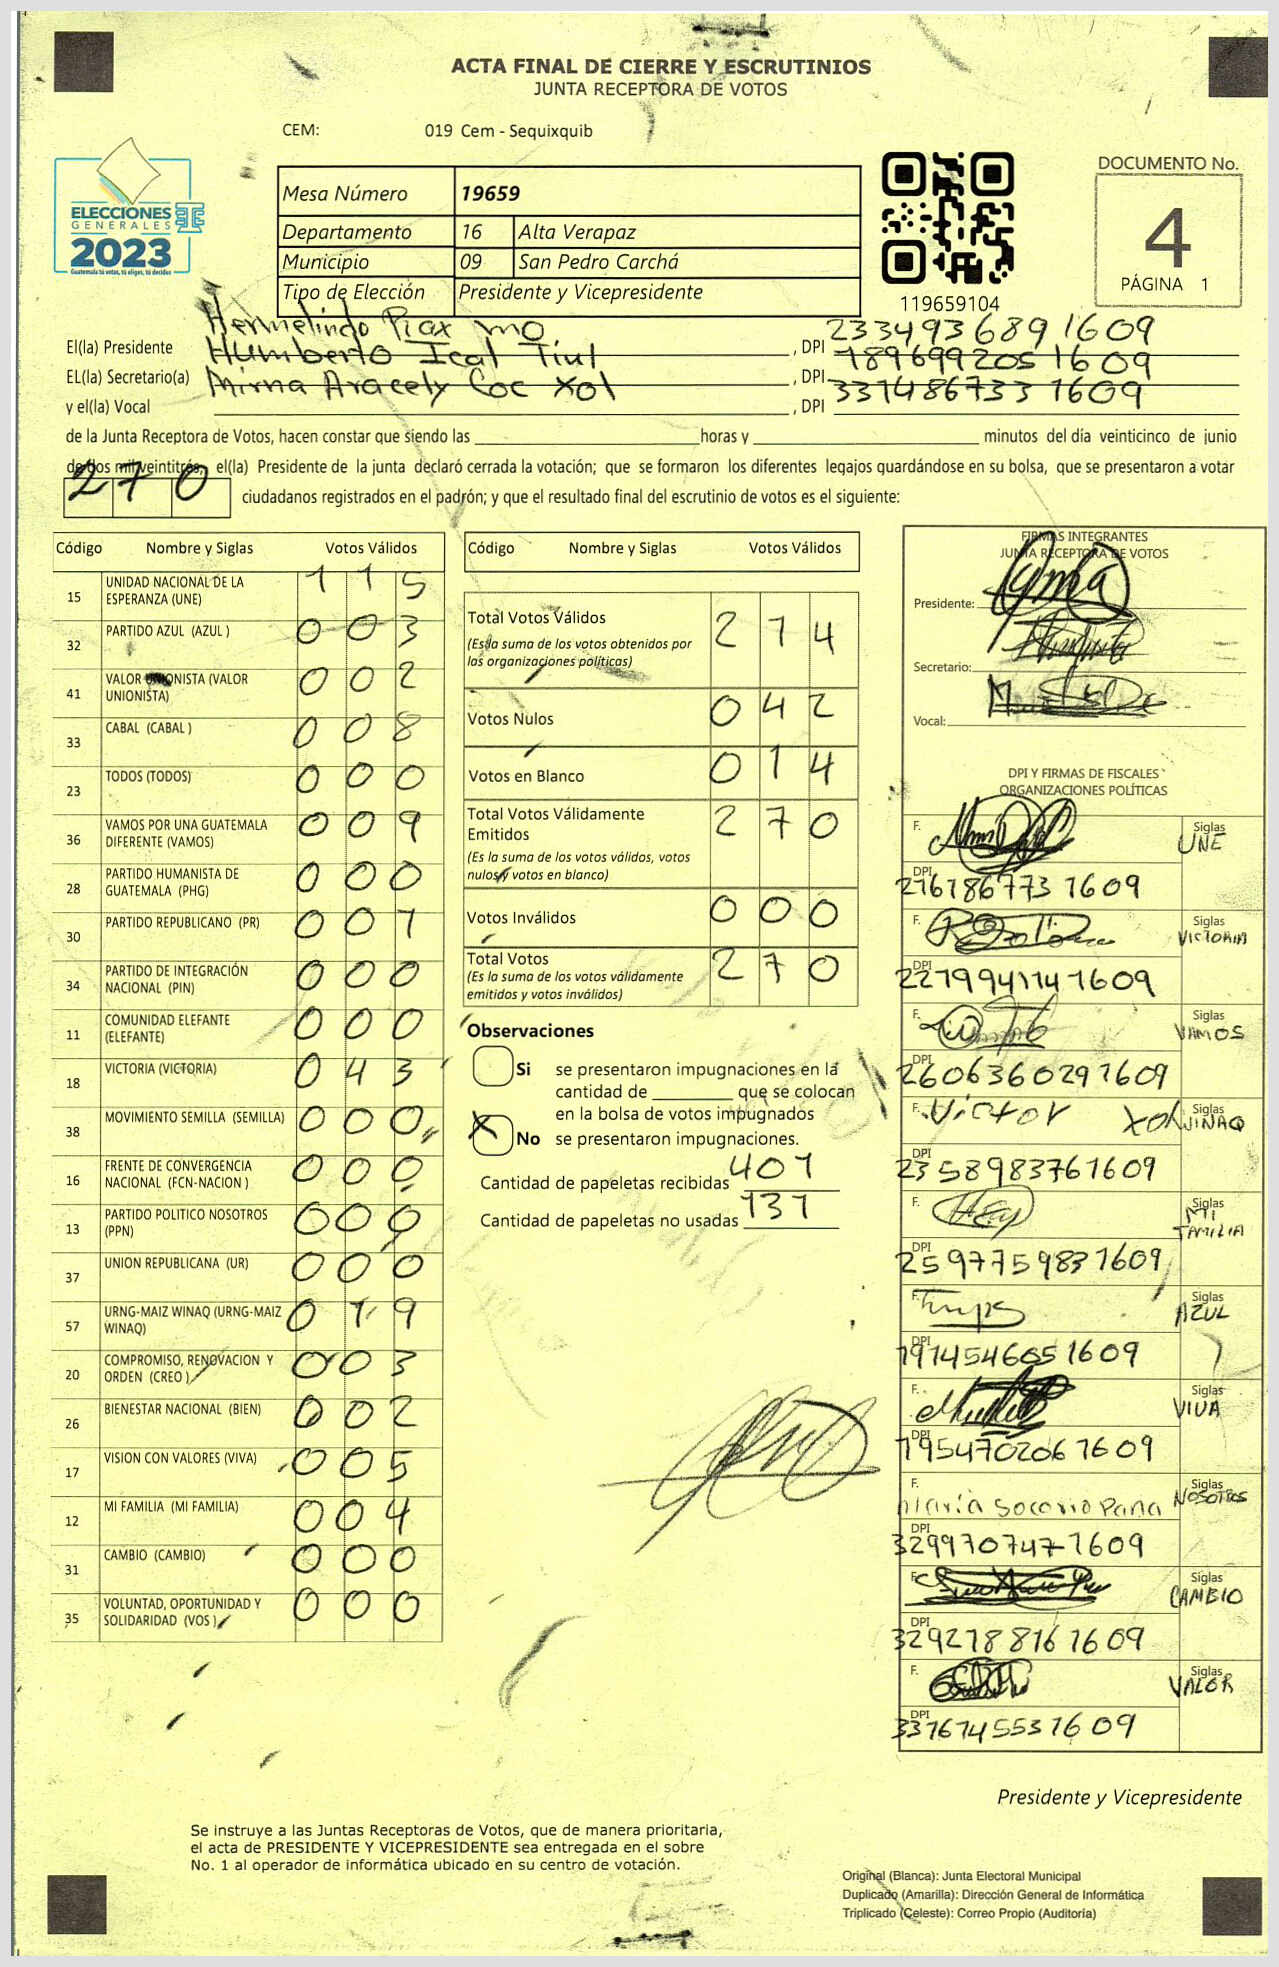 ACTA FINAL DE CIERRE Y ESCRUTINIOS
JUNTA RECEPTORA DE VOTOS
CEM: 019 Cem - Sequixquib
ELECCIONES
GENERALES
2023
Guatemala tú votas, tú eliges, tú decides
Mesa Número 19659
Departamento 16 Alta Verapaz
Municipio 09 San Pedro Carchá
Tipo de Elección Presidente y Vicepresidente
119659104
DOCUMENTO No.
4
PÁGINA 1
Hermelindo Piox mo 2334936891609
El(la) Presidente , DPI
Humberto Ical Tiul 1896992051609
EL(la) Secretario(a) , DPI
Mirna Aracely Coc Xol 3314867331609
y el(la) Vocal , DPI
de la Junta Receptora de Votos, hacen constar que siendo las horas y minutos del día veinticinco de junio
de dos mil veintitrés, el(la) Presidente de la junta declaró cerrada la votación; que se formaron los diferentes legajos guardándose en su bolsa, que se presentaron a votar
270 ciudadanos registrados en el padrón; y que el resultado final del escrutinio de votos es el siguiente:
Código Nombre y Siglas Votos Válidos
15 UNIDAD NACIONAL DE LA ESPERANZA (UNE) 115
32 PARTIDO AZUL (AZUL ) 003
41 VALOR UNIONISTA (VALOR UNIONISTA) 002
33 CABAL (CABAL ) 008
23 TODOS (TODOS) 000
36 VAMOS POR UNA GUATEMALA DIFERENTE (VAMOS) 009
28 PARTIDO HUMANISTA DE GUATEMALA (PHG) 000
30 PARTIDO REPUBLICANO (PR) 001
34 PARTIDO DE INTEGRACIÓN NACIONAL (PIN) 000
11 COMUNIDAD ELEFANTE (ELEFANTE) 000
18 VICTORIA (VICTORIA) 043
38 MOVIMIENTO SEMILLA (SEMILLA) 000
16 FRENTE DE CONVERGENCIA NACIONAL (FCN-NACION ) 000
13 PARTIDO POLITICO NOSOTROS (PPN) 000
37 UNION REPUBLICANA (UR) 000
57 URNG-MAIZ WINAQ (URNG-MAIZ WINAQ) 019
20 COMPROMISO, RENOVACION Y ORDEN (CREO ) 003
26 BIENESTAR NACIONAL (BIEN) 002
17 VISION CON VALORES (VIVA) 005
12 MI FAMILIA (MI FAMILIA) 004
31 CAMBIO (CAMBIO) 000
35 VOLUNTAD, OPORTUNIDAD Y SOLIDARIDAD (VOS ) 000
Código Nombre y Siglas Votos Válidos
Total Votos Válidos 214
(Es la suma de los votos obtenidos por
las organizaciones políticas)
Votos Nulos 042
Votos en Blanco 014
Total Votos Válidamente Emitidos 270
(Es la suma de los votos válidos, votos
nulos y votos en blanco)
Votos Inválidos 000
Total Votos 270
(Es la suma de los votos válidamente
emitidos y votos inválidos)
Observaciones
Si se presentaron impugnaciones en la
cantidad de que se colocan
en la bolsa de votos impugnados
X No se presentaron impugnaciones.
Cantidad de papeletas recibidas 401
Cantidad de papeletas no usadas 131
FIRMAS INTEGRANTES
JUNTA RECEPTORA DE VOTOS
Presidente:
Secretario:
Vocal:
DPI Y FIRMAS DE FISCALES
ORGANIZACIONES POLÍTICAS
F. Siglas UNE
DPI 2761867731609
F. Siglas VICTORIA
DPI 2279941141609
F. Siglas VAMOS
DPI 2606360291609
F. Victor Xol Siglas WINAQ
DPI 2358983761609
F. Siglas MI FAMILIA
DPI 2597759831609
F. Siglas AZUL
DPI 1914546051609
F. Siglas VIVA
DPI 1954702061609
F. María Socorro Pana Siglas NOSOTROS
DPI 3299707471609
F. Siglas CAMBIO
DPI 3292188161609
F. Siglas VALOR
DPI 3316145531609
Presidente y Vicepresidente
Se instruye a las Juntas Receptoras de Votos, que de manera prioritaria,
el acta de PRESIDENTE Y VICEPRESIDENTE sea entregada en el sobre
No. 1 al operador de informática ubicado en su centro de votación.
Original (Blanca): Junta Electoral Municipal
Duplicado (Amarilla): Dirección General de Informática
Triplicado (Celeste): Correo Propio (Auditoría)